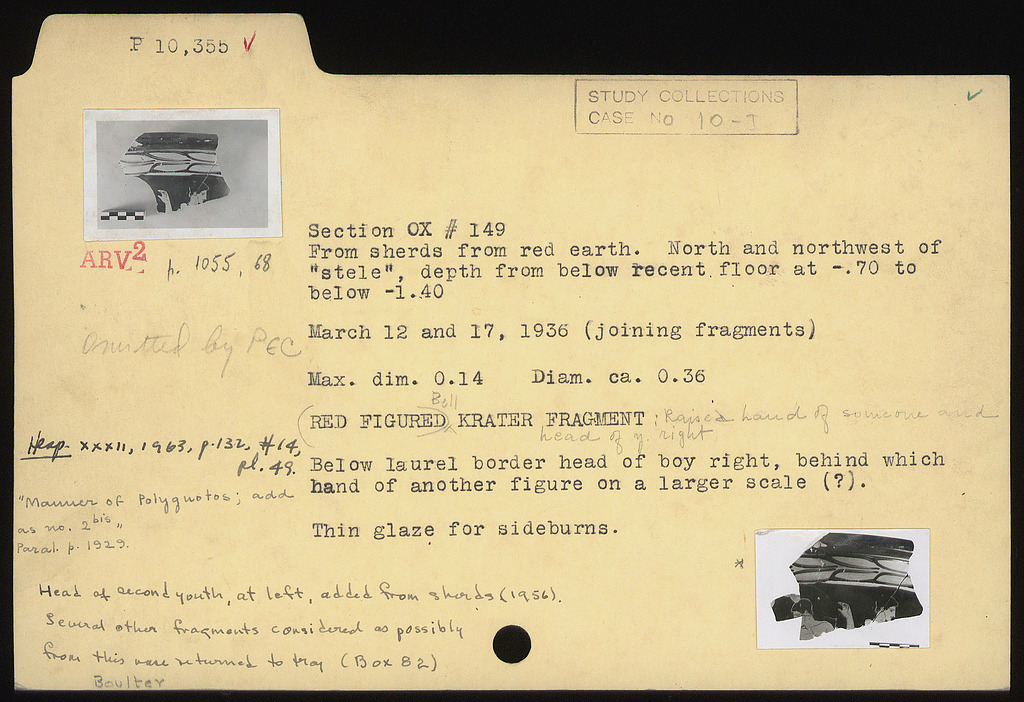 P 10,355 ✓
STUDY COLLECTIONS
CASE No 10-I
✓
ARV2 p. 1055, 68
Section OX # 149
From sherds from red earth. North and northwest of
"stele", depth from below recent floor at -.70 to
below -1.40
omitted by PEC
March 12 and 17, 1936 (joining fragments)
Max. dim. 0.14 Diam. ca. 0.36
Bell
(RED FIGURED) KRATER FRAGMENT : Raised hand of someone and
head of y. right
Hesp. XXXII, 1963, p. 132, #14,
pl. 49.
Below laurel border head of boy right, behind which
hand of another figure on a larger scale (?).
"Manner of Polygnotos; add
as no. 2bis"
Paral. p. 1929.
Thin glaze for sideburns.
*
Head of second youth, at left, added from sherds (1956).
Several other fragments considered as possibly
from this vase returned to tray (Box 82)
Boulter